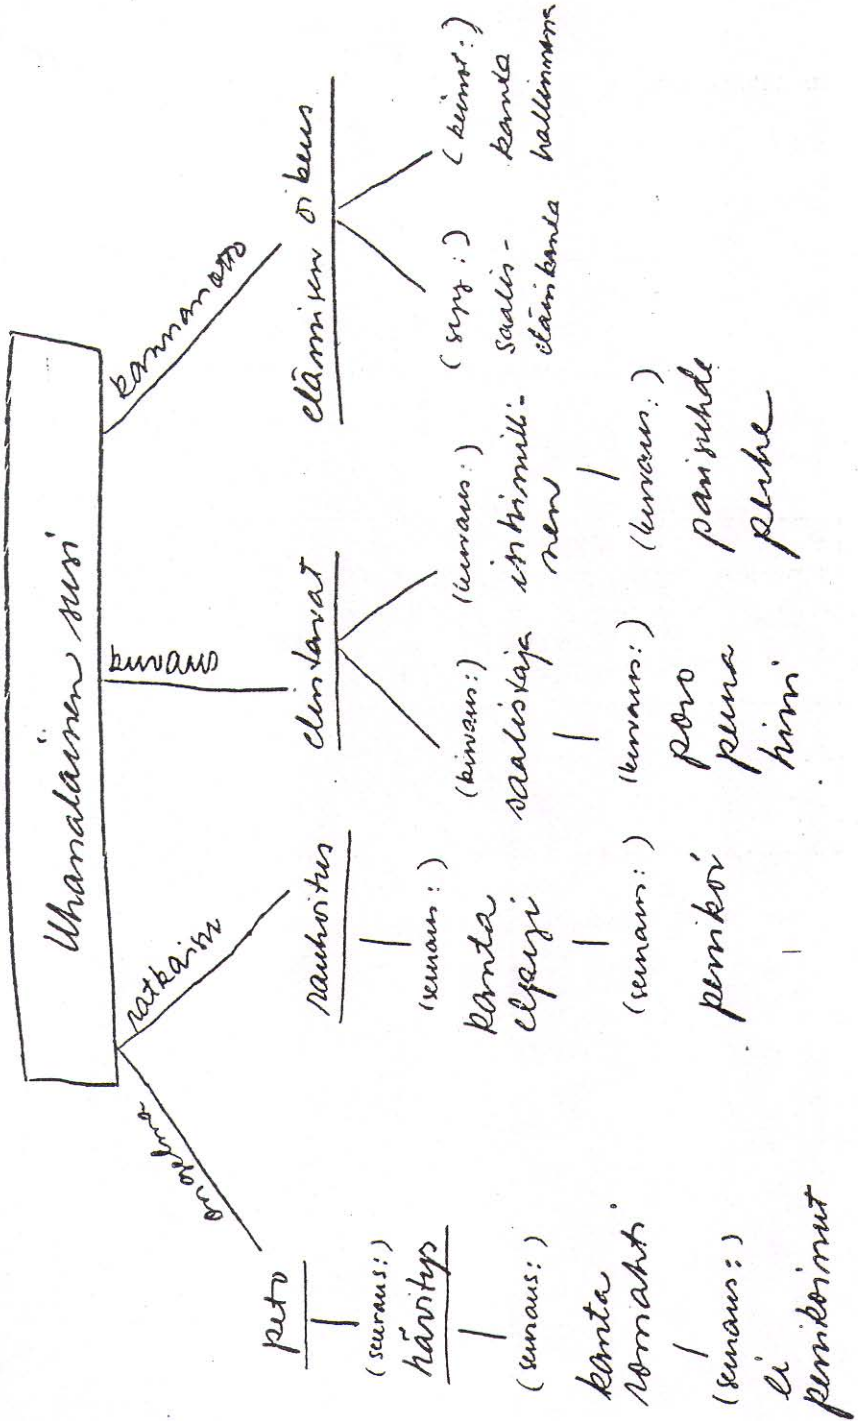 Uhanalainen susi
ongelma
ratkaisu
kuvaus
kannanotto
peto
(seuraus:)
hävitys
(seuraus:)
kanta
romahti
(seuraus:)
ei
penikoinut
rauhoitus
(seuraus:)
kanta
elpyi
(seuraus:)
penikoi
elintavat
(kuvaus:)
saalistaja
(kuvaus:)
poro
peura
hirvi
(kuvaus:)
inhimilli-
nen
(kuvaus:)
parisuhde
perhe
elämisen oikeus
(syy:)
saalis-
eläinkanta
(keinot:)
kanta
hallinnassa